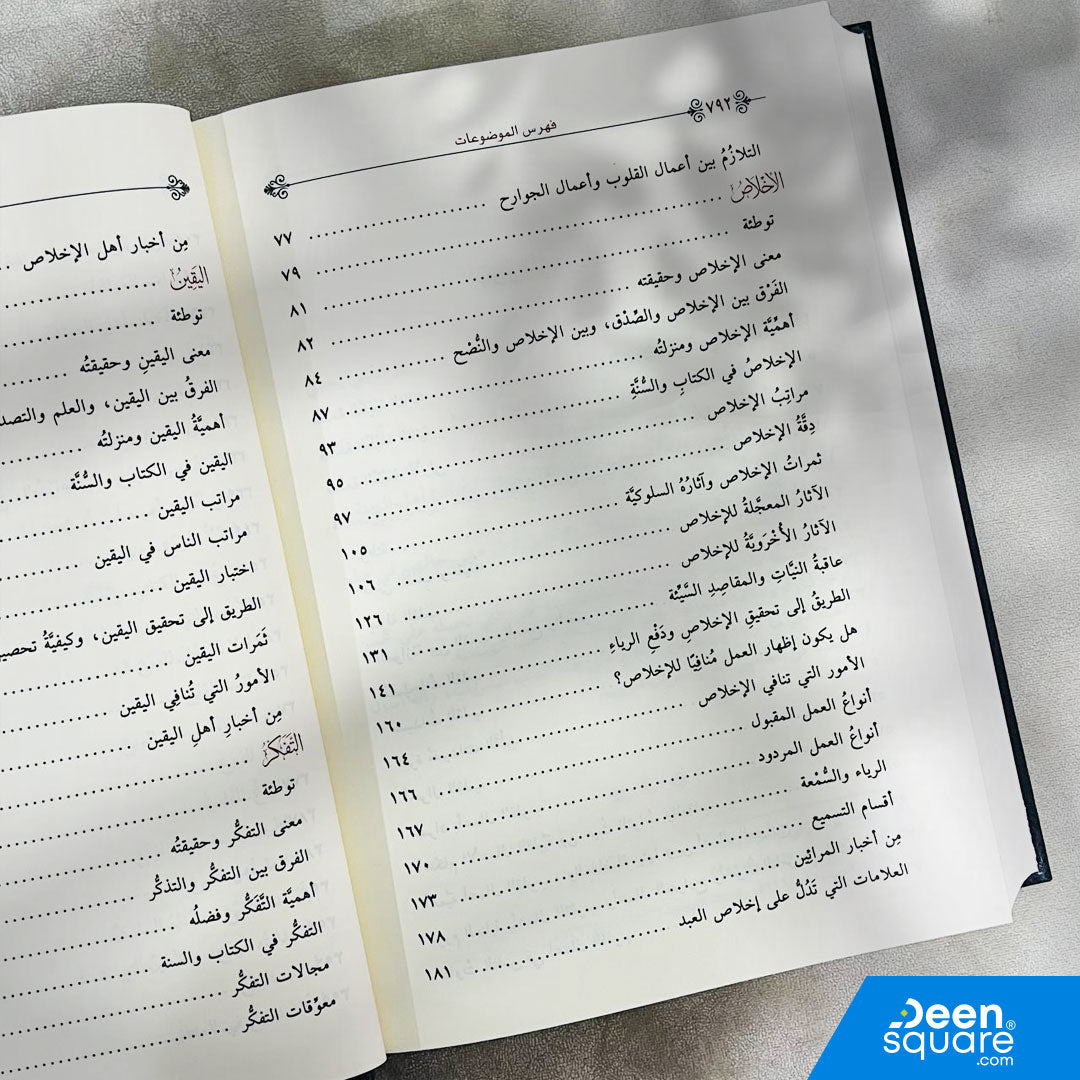 ٧٩٢
فهرس الموضوعات
التلازُمُ بين أعمال القلوب وأعمال الجوارح ........ ٧٧
الإخلاصُ ........ ٧٩
توطئة ........ ٨١
معنى الإخلاص وحقيقته ........ ٨٢
الفَرْق بين الإخلاص والصِّدْق، وبين الإخلاص والنُّصْح ........ ٨٤
أهمِّيَّة الإخلاص ومنزلتُه ........ ٨٧
الإخلاصُ في الكتابِ والسُّنَّةِ ........ ٩٣
مراتِبُ الإخلاص ........ ٩٥
دِقَّةُ الإخلاص ........ ٩٧
ثمراتُ الإخلاص وآثارُهُ السلوكيَّة ........ ١٠٥
الآثارُ المعجَّلةُ للإخلاص ........ ١٠٦
الآثارُ الأُخْرَويَّةُ للإخلاص ........ ١٢٦
عاقبةُ النيَّاتِ والمقاصِدِ السَّيِّئة ........ ١٣١
الطريقُ إلى تحقيقِ الإخلاصِ ودَفْعِ الرياءِ ........ ١٤١
هل يكون إظهار العمل مُنافِيًا للإخلاص؟ ........ ١٦٠
الأمور التي تنافي الإخلاص ........ ١٦٤
أنواعُ العمل المقبول ........ ١٦٦
أنواعُ العمل المردود ........ ١٦٧
الرياء والسُّمْعة ........ ١٧٠
أقسام التسميع ........ ١٧٣
مِن أخبار المرائِين ........ ١٧٨
العلامات التي تَدُلُّ على إخلاص العبد ........ ١٨١
مِن أخبار أهل الإخلاص ........
اليَقِينُ ........
توطئة ........
معنى اليقين وحقيقتُه ........
الفرقُ بين اليقين، والعلم والتصد
أهميَّةُ اليقين ومنزلتُه ........
اليقين في الكتاب والسُّنَّة ........
مراتب اليقين ........
مراتب الناس في اليقين ........
اختبار اليقين ........
الطريق إلى تحقيق اليقين، وكيفيَّةُ تحصي
ثَمَرات اليقين ........
الأمورُ التي تُنافِي اليقين ........
مِن أخبارِ أهلِ اليقين ........
التَّفَكُّرُ ........
توطئة ........
معنى التفكُّر وحقيقتُه ........
الفرق بين التفكُّر والتذكُّر ........
أهميَّة التَّفَكُّر وفضلُه ........
التفكُّر في الكتاب والسنة ........
مجالات التفكُّر ........
معوِّقات التفكُّر ........
Deen
square®
.com